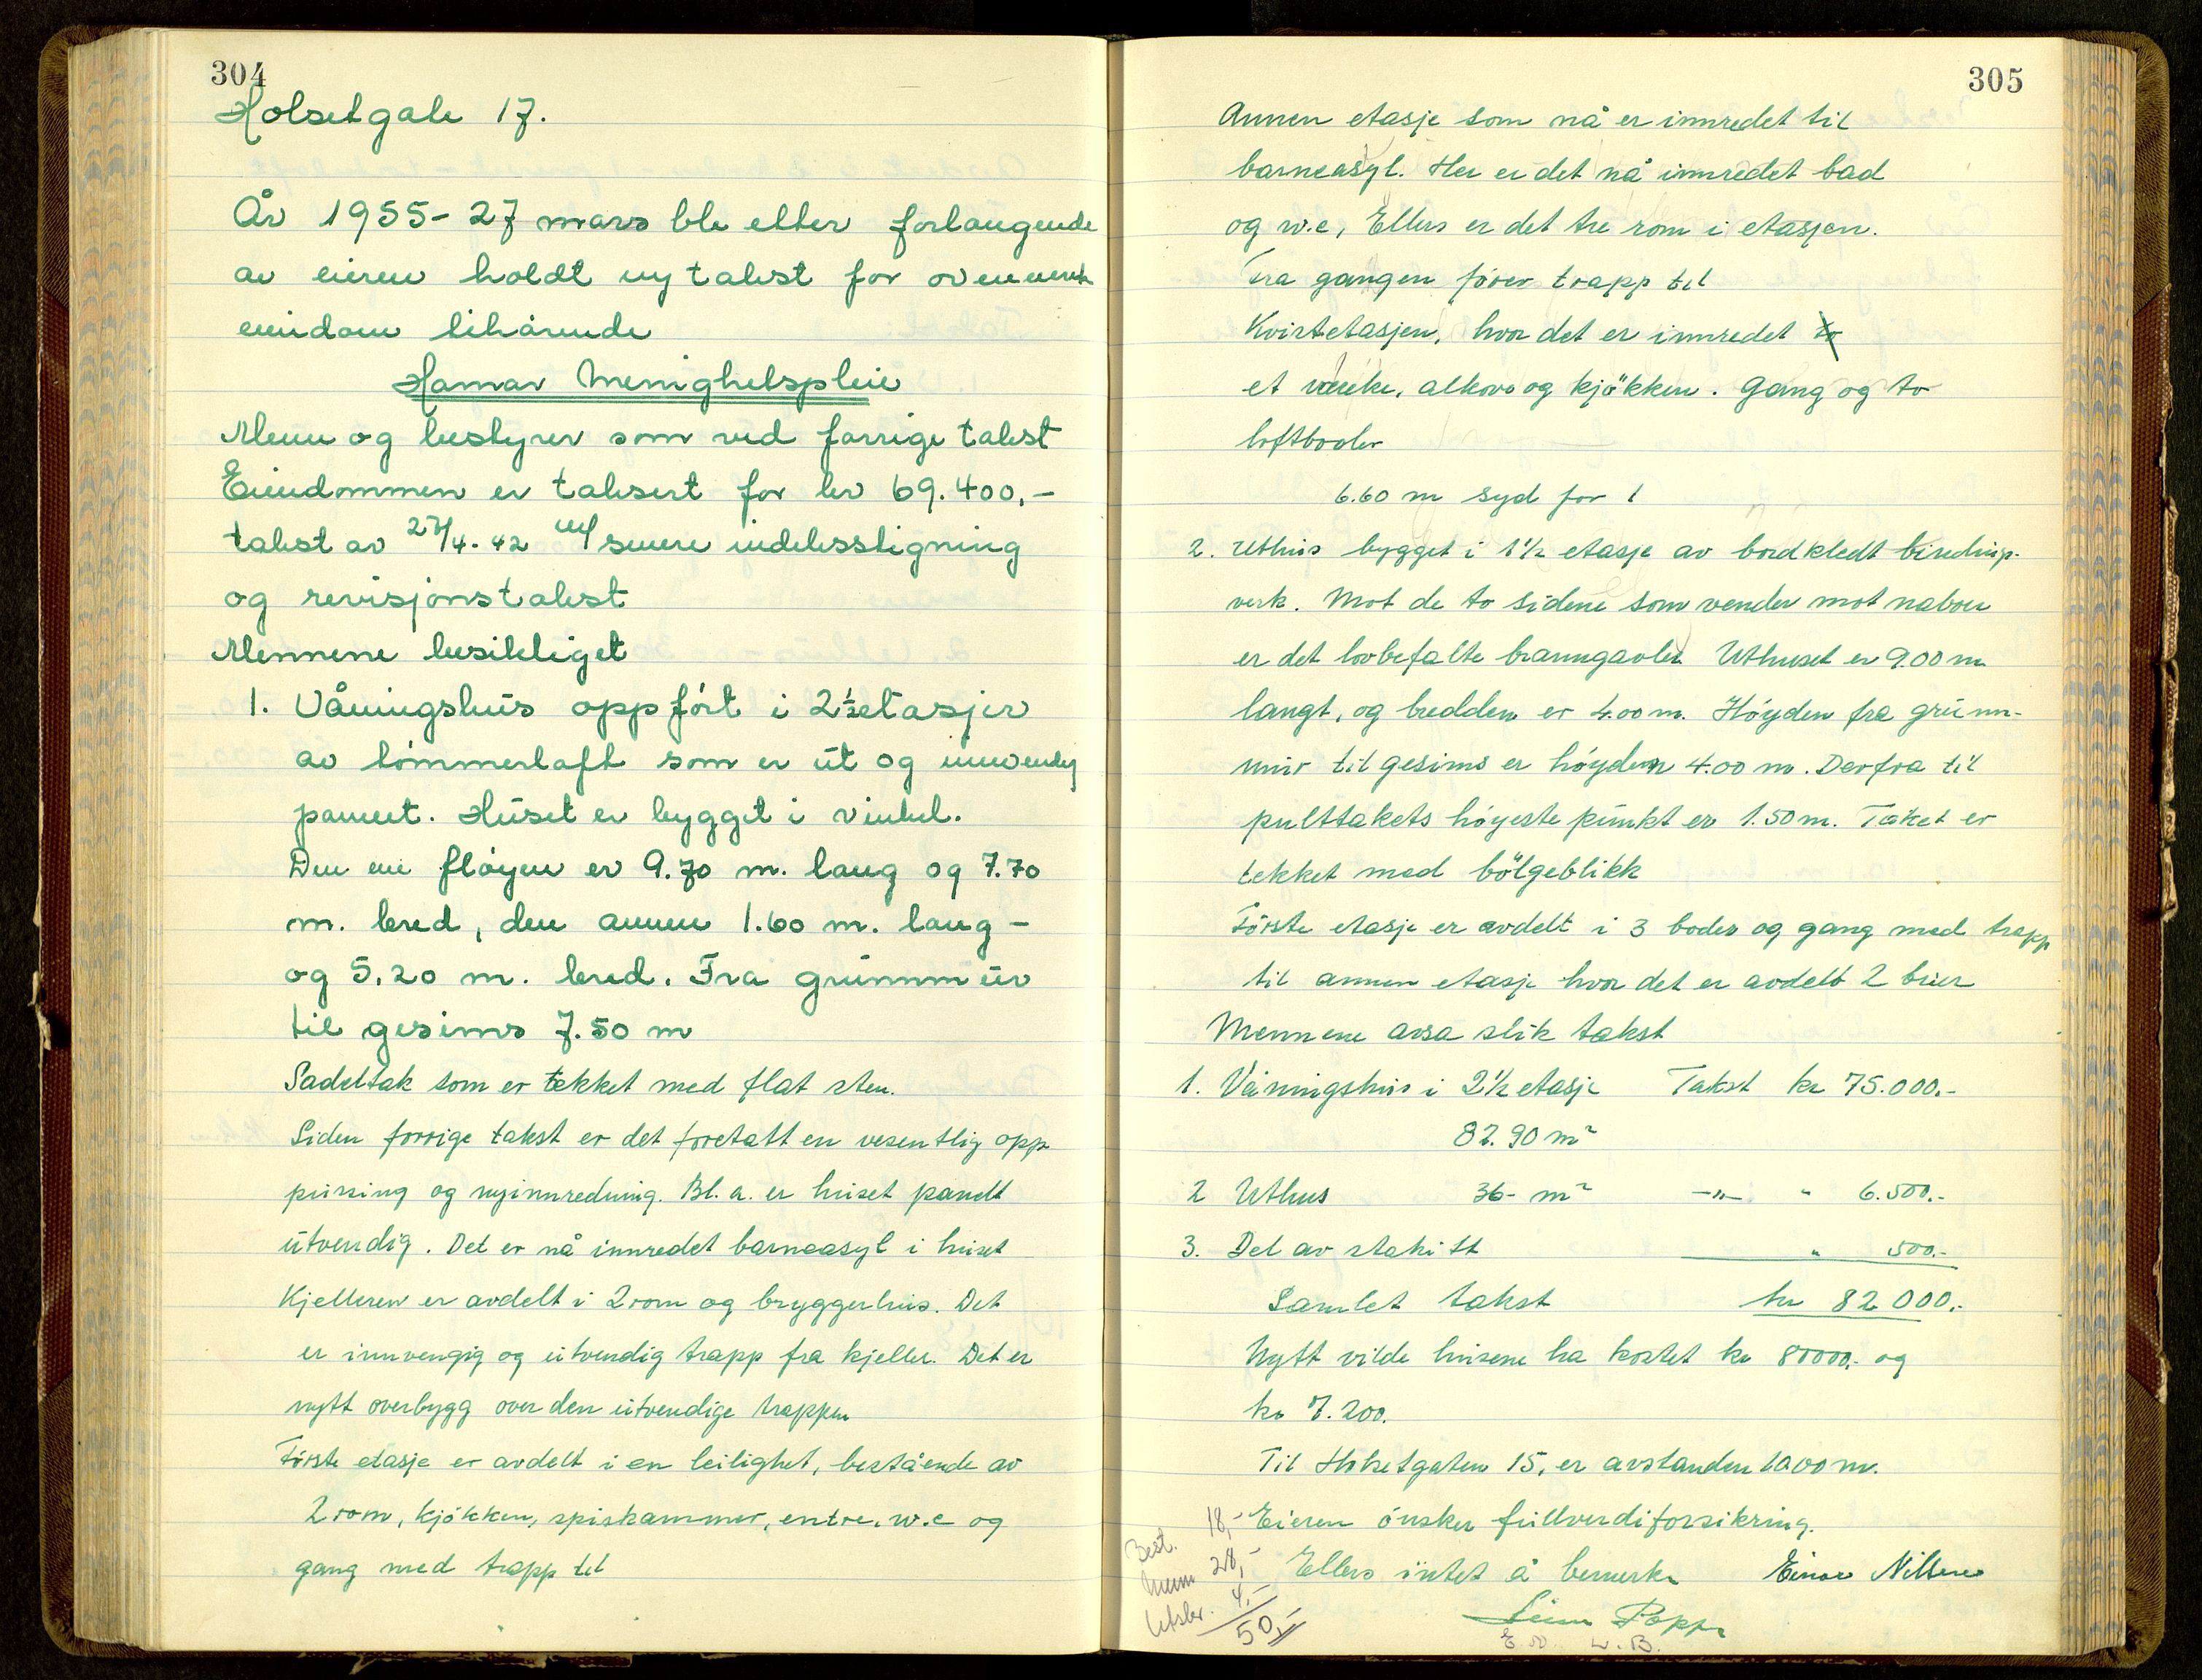 304
Holsetgate 17.
År 1955 - 27 mars ble etter forlangende
av eieren holdt ny takst for ovennevnte
eiendom tilhørende
Hamar Menighetspleie
Menn og bestyrer som ved forrige takst
Eiendommen er taksert for kr 69.400,-
takst av 27/4-42 m/senere indeksstigning
og revisjonstakst
Mennene besiktiget
1. Våningshus oppført i 2 1/2 etasjer
av tømmerlaft som er ut og innvendig
panelt. Huset er bygget i vinkel.
Den ene fløyen er 9.70 m. lang og 7.70
m. bred, den annen 1.60 m. lang -
og 5.20 m. bred. Fra grunnmur
til gesims 7.50 m
Sadeltak som er tekket med flat sten.
Siden forrige takst er det foretatt en vesentlig opp
pussing og nyinnredning. Bl. a. er huset panelt
utvendig. Det er nå innredet barneasyl i huset
Kjelleren er avdelt i 2 rom og bryggerhus. Det
er innvengig og utvendig trapp fra kjeller. Det er
nytt overbygg over den utvendige trappen
Første etasje er avdelt i en leilighet, bestående av
2 rom, kjøkken, spiskammer, entre, w.c og
gang med trapp til
305
Annen etasje som nå er innredet til
barneasyl. Her er det nå innredet bad
og w.c, Ellers er det tre rom i etasjen.
Fra gangen fører trapp til
Kvistetasjen, hvor det er innredet to
et værelse, alkove og kjøkken. Gang og to
loftboder
6.60 m syd for 1
2. Uthus bygget i 1 1/2 etasje av bordkledt bindings-
verk. Mot de to sidene som vender mot naboer
er det lovbefalte branngavler Uthuset er 9.00 m
langt, og bredden er 4.00 m. Høyden fra grunn-
mur til gesims er høyden 4.00 m. Derfra til
pulttakets høyeste punkt er 1.50 m. Taket er
tekket med bølgeblikk
Første etasje er avdelt i 3 boder og gang med trapp
til annen etasje hvor det er avdelt 2 buer
Mennene avsa slik takst
1. Våningshus i 2 1/2 etasje Takst kr 75.000.-
82.90 m²
2 Uthus 36- m² -"- " 6.500.-
3. Del av stakitt " 500.-
Samlet takst kr 82 000.-
Nytt vilde husene ha kostet kr 80000.- og
kr 7.200.
Til Holsetgaten 15, er avstanden 10.00 m.
18,- Eieren ønsker fullverdiforsikring.
Best.
Menn 28,- Ellers intet å bemerke Einar Nilsen
Utskr. 4,-
50,-
Popp
E N. L. B.